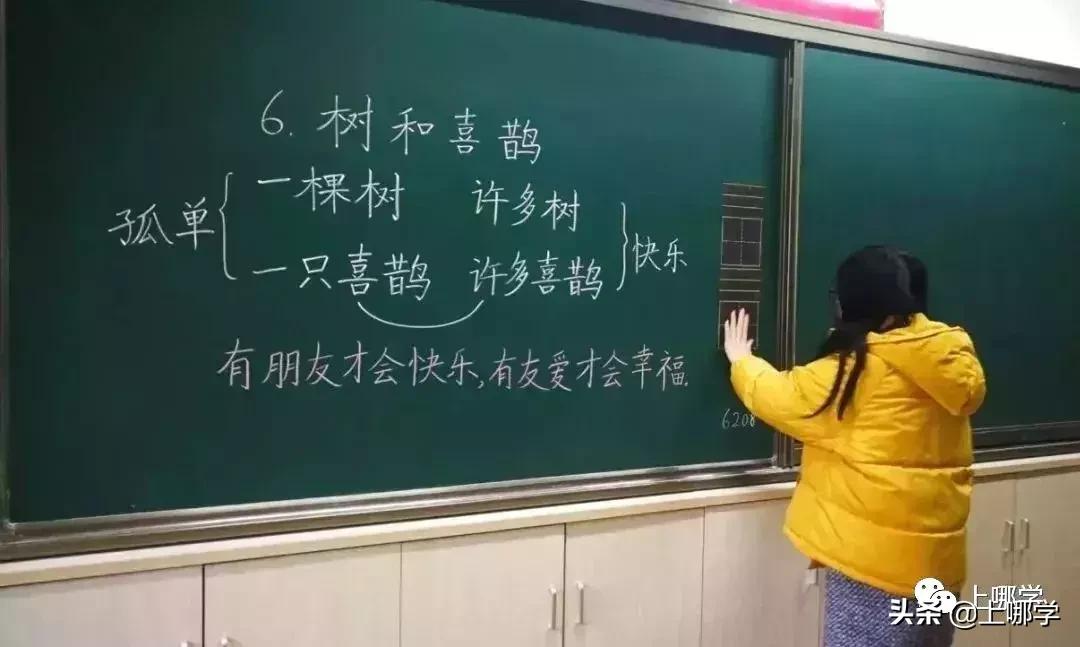 6. 树和喜鹊
孤单 { 一棵树 许多树
一只喜鹊 许多喜鹊 } 快乐
有朋友才会快乐,有友爱才会幸福.
6208
上哪学
头条 @上哪学